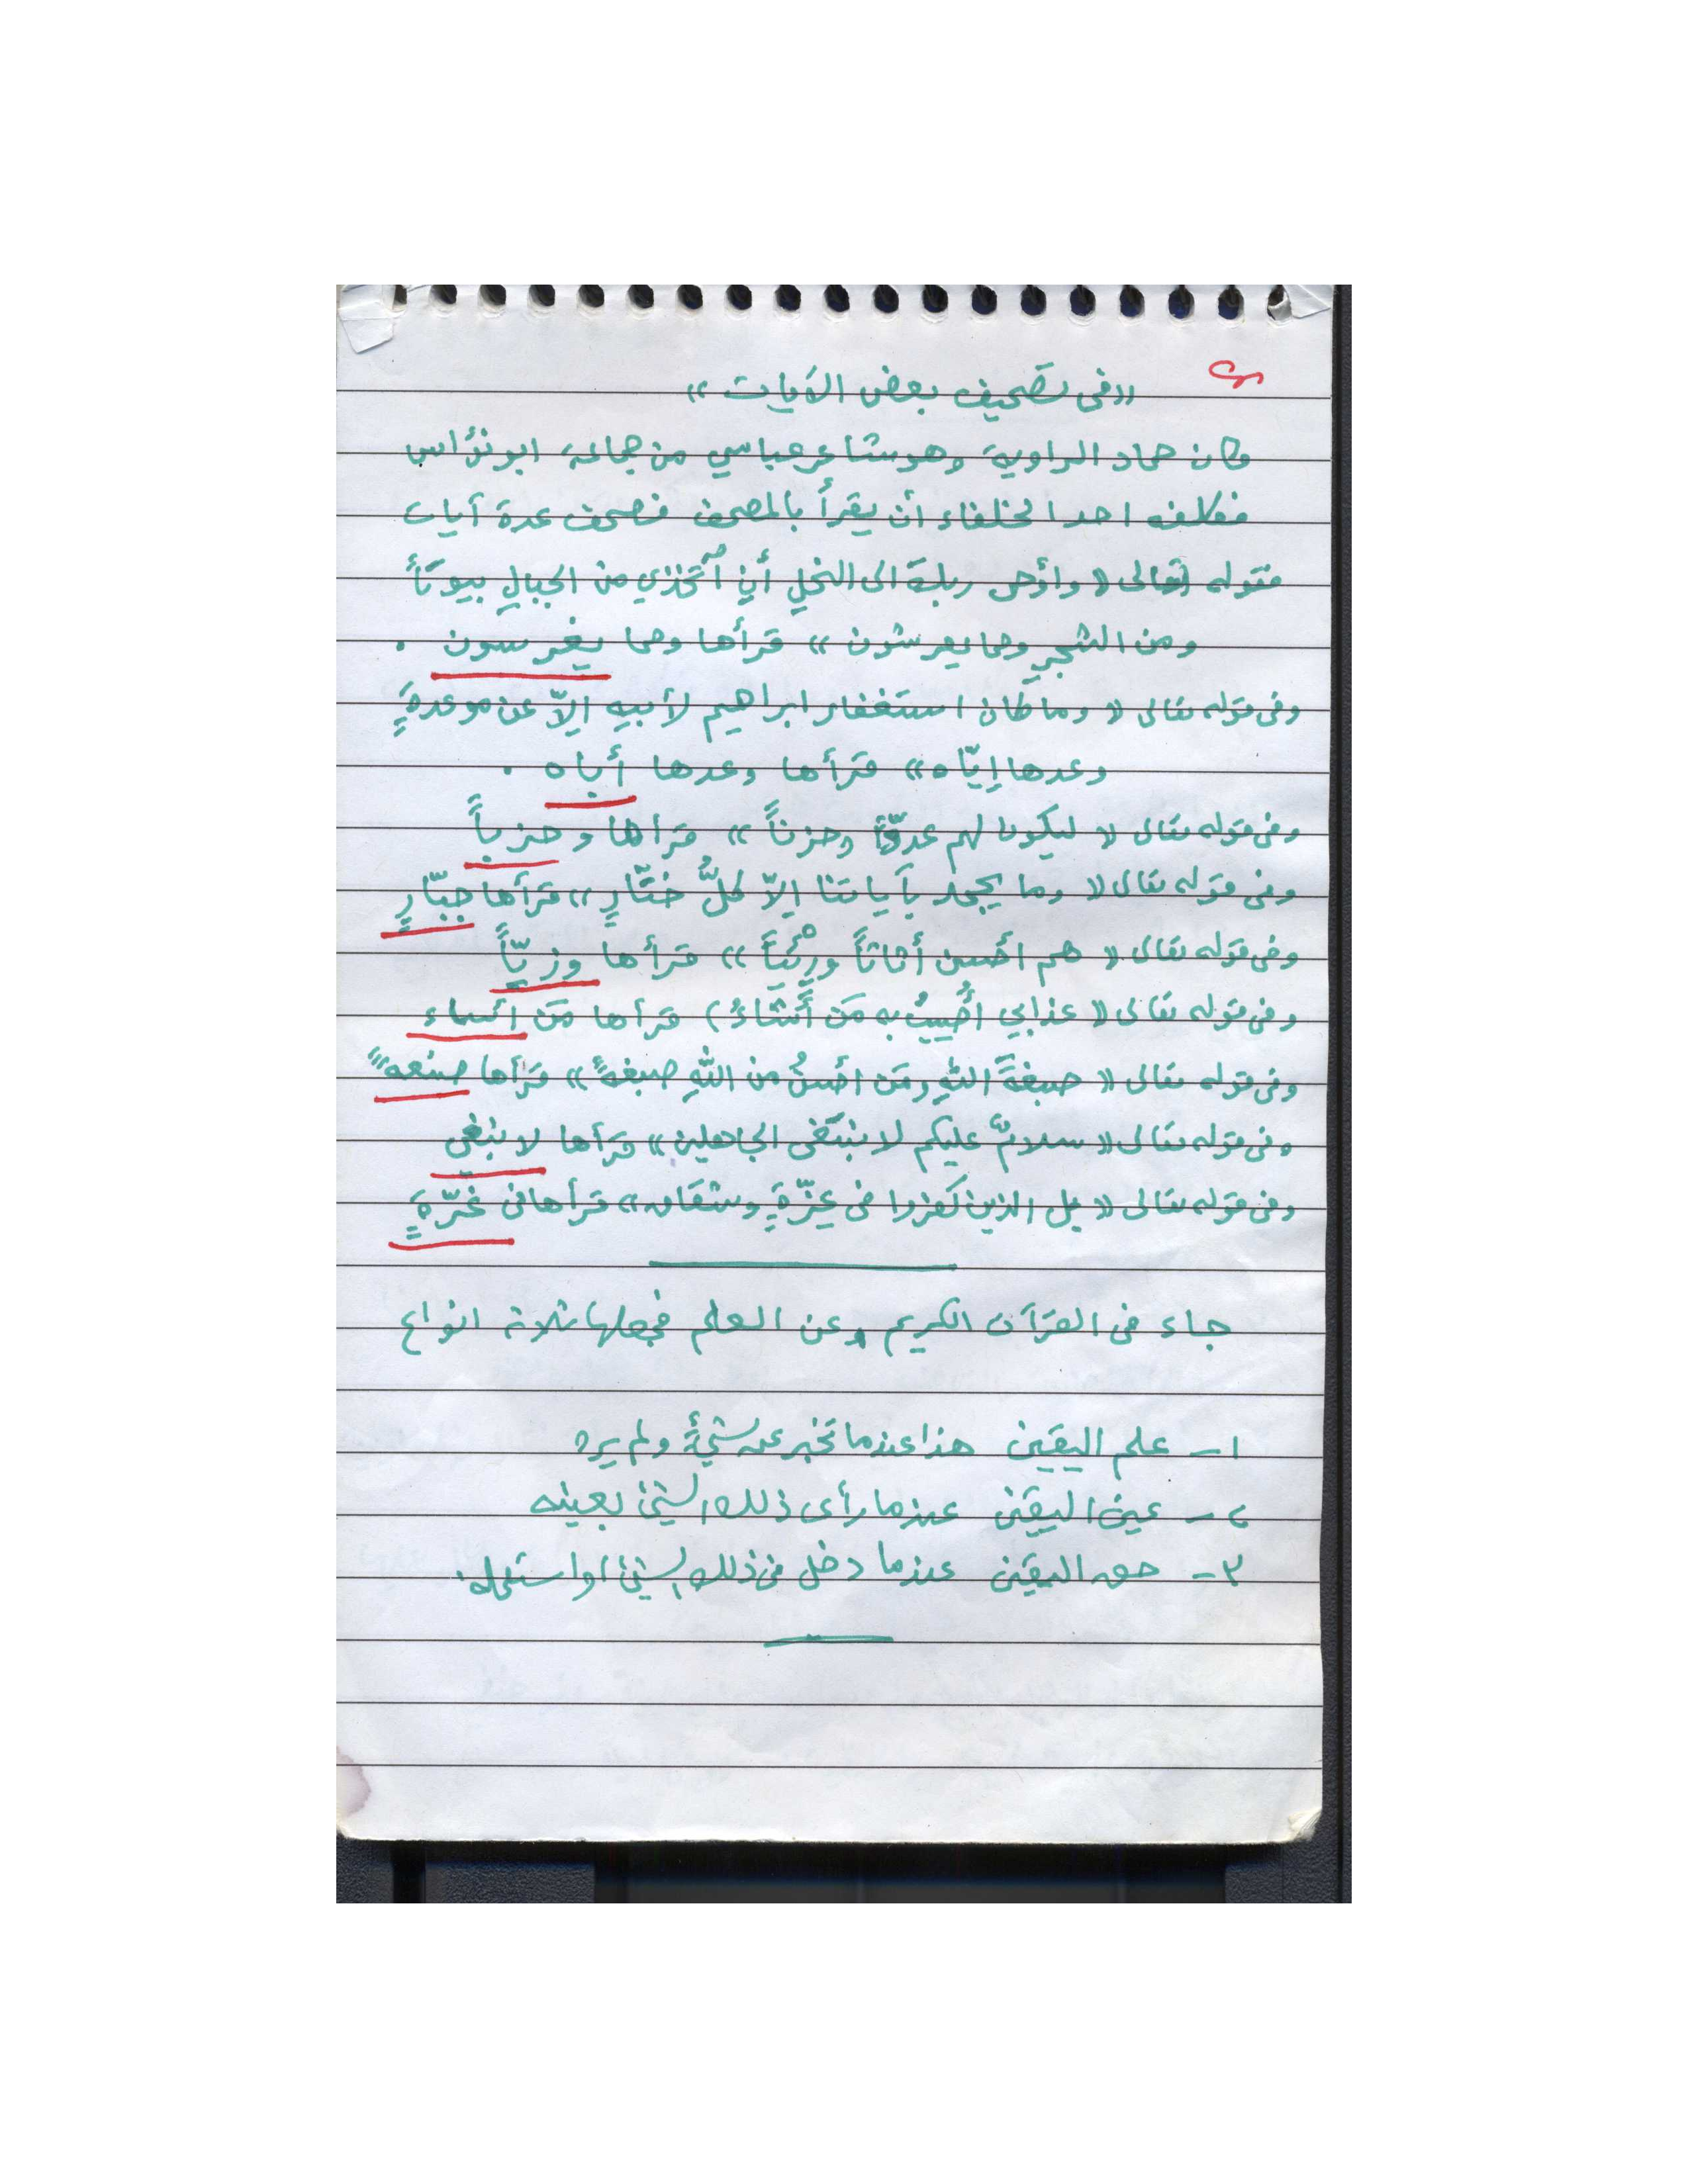 ((في تصحيف بعض الآيات))
وكان حماد الراوية وهو شاعر عباسي من جماعة ابو نؤاس
فكلفه احد الخلفاء أن يقرأ بالمصحف فصحف عدة آيات
فقوله تعالى ((وأوحى ربك الى النحلِ أنِ آتخذي من الجبالِ بيوتاً
ومن الشجرِ ومما يعرشون)) قرأها ومما يغرسون .
وفي قوله تعالى ((وما كان استغفار ابراهيم لأبيهِ إلاّ عن موعدةٍ
وعدها إيّاه)) قرأها وعدها أباه .
وفي قوله تعالى ((ليكون لهم عدوّاً وحزناً)) قرأها وحزباً
وفي قوله تعالى ((وما يجحد بآياتنا إلاّ كلُّ ختّارٍ)) قرأها جبّارٍ
وفي قوله تعالى ((هم أحسن أثاثاً ورِئْياً)) قرأها وزيّاً
وفي قوله تعالى ((عذابي أُصيبُ به مَن أَشاءُ) قرأها مَن أساء
وفي قوله تعالى ((صبغةَ اللهِ ومَن أحسنُ من اللهِ صبغةً)) قرأها صنعةً
وفي قوله تعالى ((سلامٌ عليكم لا نبتغي الجاهلين)) قرأها لا نبغي
وفي قوله تعالى ((بل الذين كفروا في عِزّةٍ وشقاق)) قرأها في غرّةٍ
جاء في القرآن الكريم وعن العلم فجعلها ثلاثة انواع
١- علم اليقين هذا عندما تخبر عن شيءٍ ولم يره
٢- عين اليقين عندما رأى ذلك الشيئ بعينه
٣- حق اليقين عندما دخل في ذلك الشيئ أو استعمله.